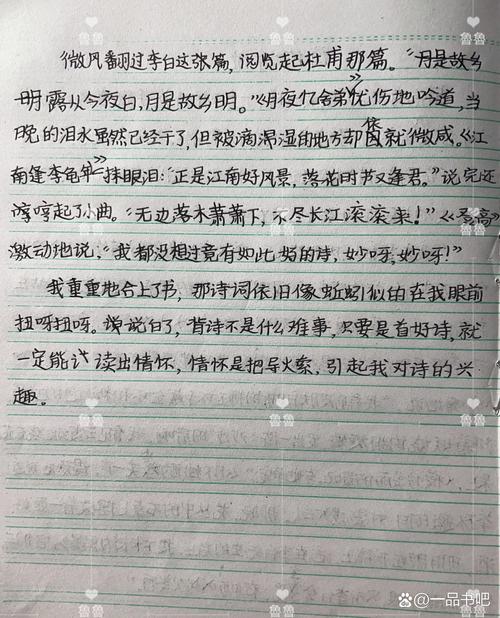 微风翻过李白这张篇，阅览起杜甫那篇。“月是故乡
明露从今夜白，月是故乡明。”《月夜忆舍弟》忧伤地吟道，当
晚的泪水虽然已经干了，但被滴湿的地方却依就微咸。《江
南逢李龟年》一抹眼泪：“正是江南好风景，落花时节又逢君。”说完还
哼哼起了小曲。“无边落木萧萧下，不尽长江滚滚来！”《登高》
激动地说，“我都没想过竟有如此好的诗，妙呀，妙呀！”
我重重地合上了书，那诗词依旧像蚯蚓似的在我眼前
扭呀扭呀。说白了，背诗不是什么难事，只要是首好诗，就
一定能让读出情怀，情怀是把导火索，引起我对诗的兴
趣。
鲁鲁
@一品书吧